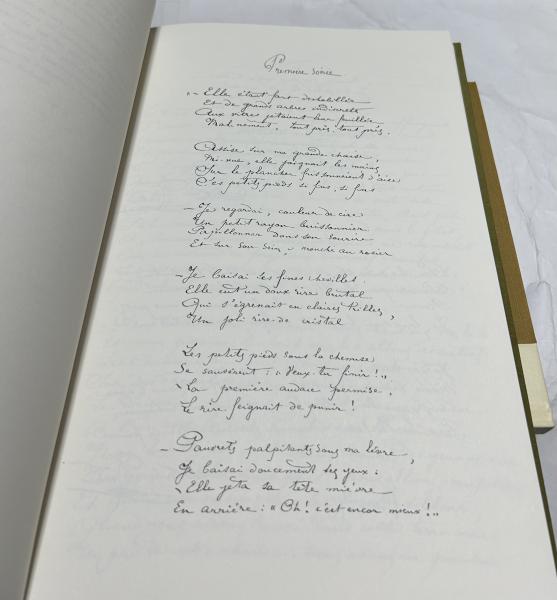 Première soirée
"– Elle était fort déshabillée
Et de grands arbres indiscrets
Aux vitres jetaient leur feuillée
Malinement, tout près, tout près.
Assise sur ma grande chaise,
Mi-nue, elle joignait les mains,
Sur le plancher frissonnaient d'aise
Ses petits pieds si fins, si fins
– Je regardai, couleur de cire
Un petit rayon buissonnier
Papillonner dans son sourire
Et sur son sein, – mouche au rosier
– Je baisai ses fines chevilles.
Elle eut un doux rire brutal
Qui s'égrenait en claires trilles,
Un joli rire de cristal
Les petits pieds sous la chemise
Se sauvèrent : "Veux-tu finir !"
– La première audace permise,
Le rire feignait de punir !
– Pauvrets palpitants sous ma lèvre,
Je baisai doucement ses yeux :
– Elle jeta sa tête mièvre
En arrière : "Oh ! c'est encor mieux !"